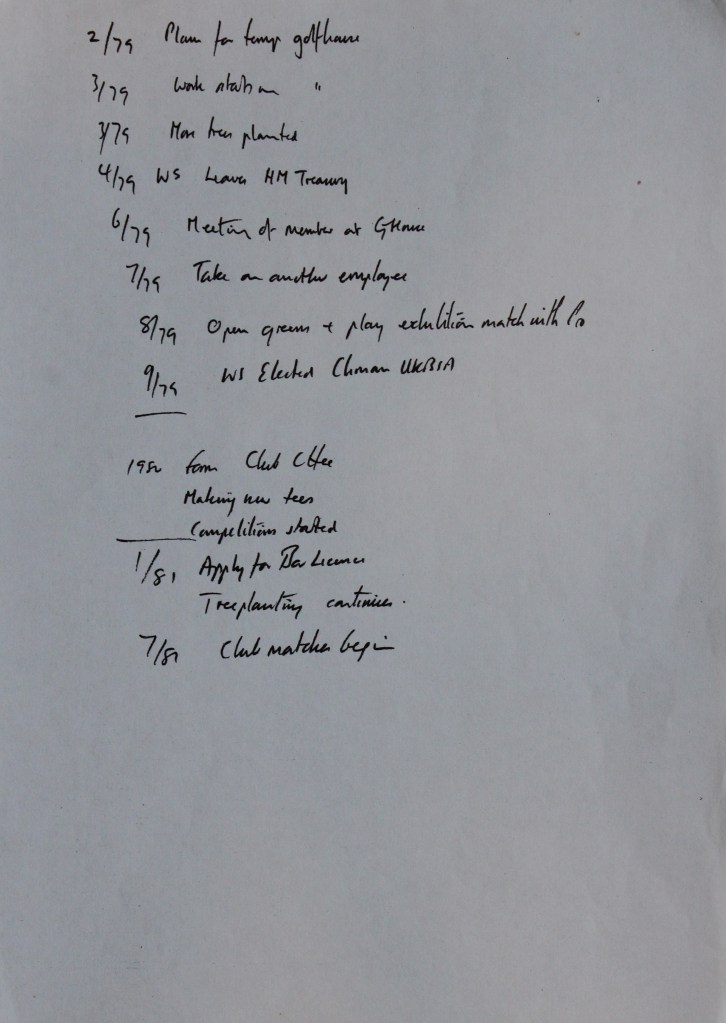 2/79 Plans for temp golfhouse
3/79 Work starts on "
3/79 More trees planted
4/79 WS Leaves HM Treasury
6/79 Meeting of members at GHouse
7/79 Take on another employee
8/79 Open greens + play exhibition match with Pro
9/79 WS Elected Chman UKBSA
1980 Form Club Cttee
Making new tees
Competitions started
1/81 Apply for Bar Licence
Treeplanting continues.
7/81 Club matches begin